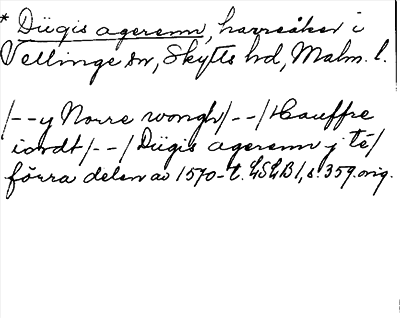 * Diigis agerenn, harreåker i
Vellinge sn, Skytts hd, Malm. l.
/--y Norre wongh/--/Hauffre
iordt/--/Diigis agerenn j té/
förra delen av 1570-t. LSLB1, s. 359. orig.